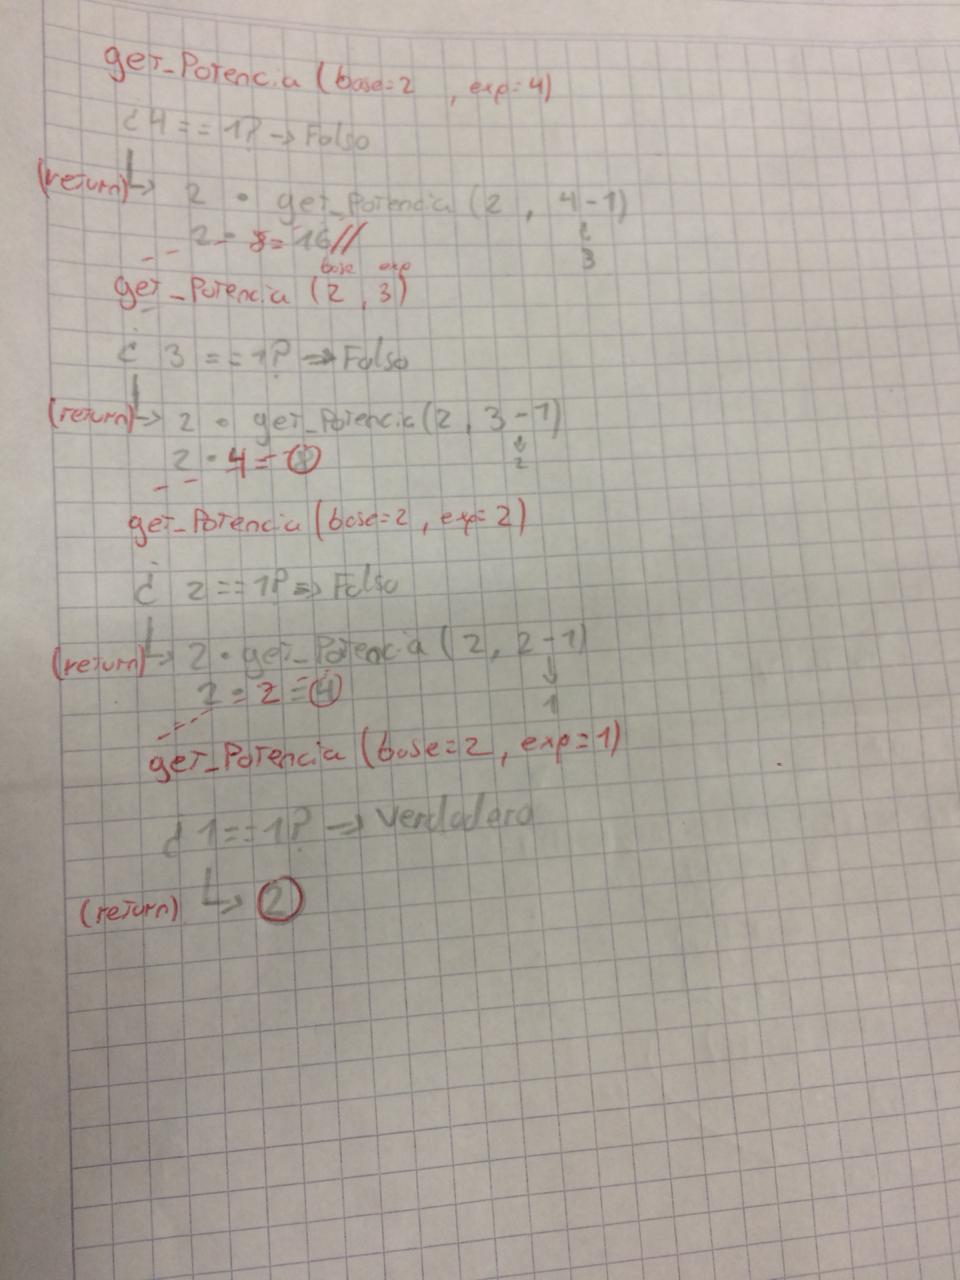 get_Potencia (base=2 , exp=4)
¿4 == 1? → Falso
(return) ↳ 2 • get_Potencia (2 , 4-1)
↓
2 • 8 = 16//
3
base exp
get_Potencia (2 , 3)
¿ 3 == 1? → Falso
(return) ↳ 2 • get_Potencia (2, 3-1)
↓
2 • 4 = 8
2
get_Potencia (base=2 , exp=2)
¿ 2 == 1? → Falso
(return) ↳ 2 • get_Potencia (2, 2-1)
↓
2 • 2 = 4
1
get_Potencia (base=2 , exp=1)
¿ 1 == 1? → Verdadero
(return) ↳ 2